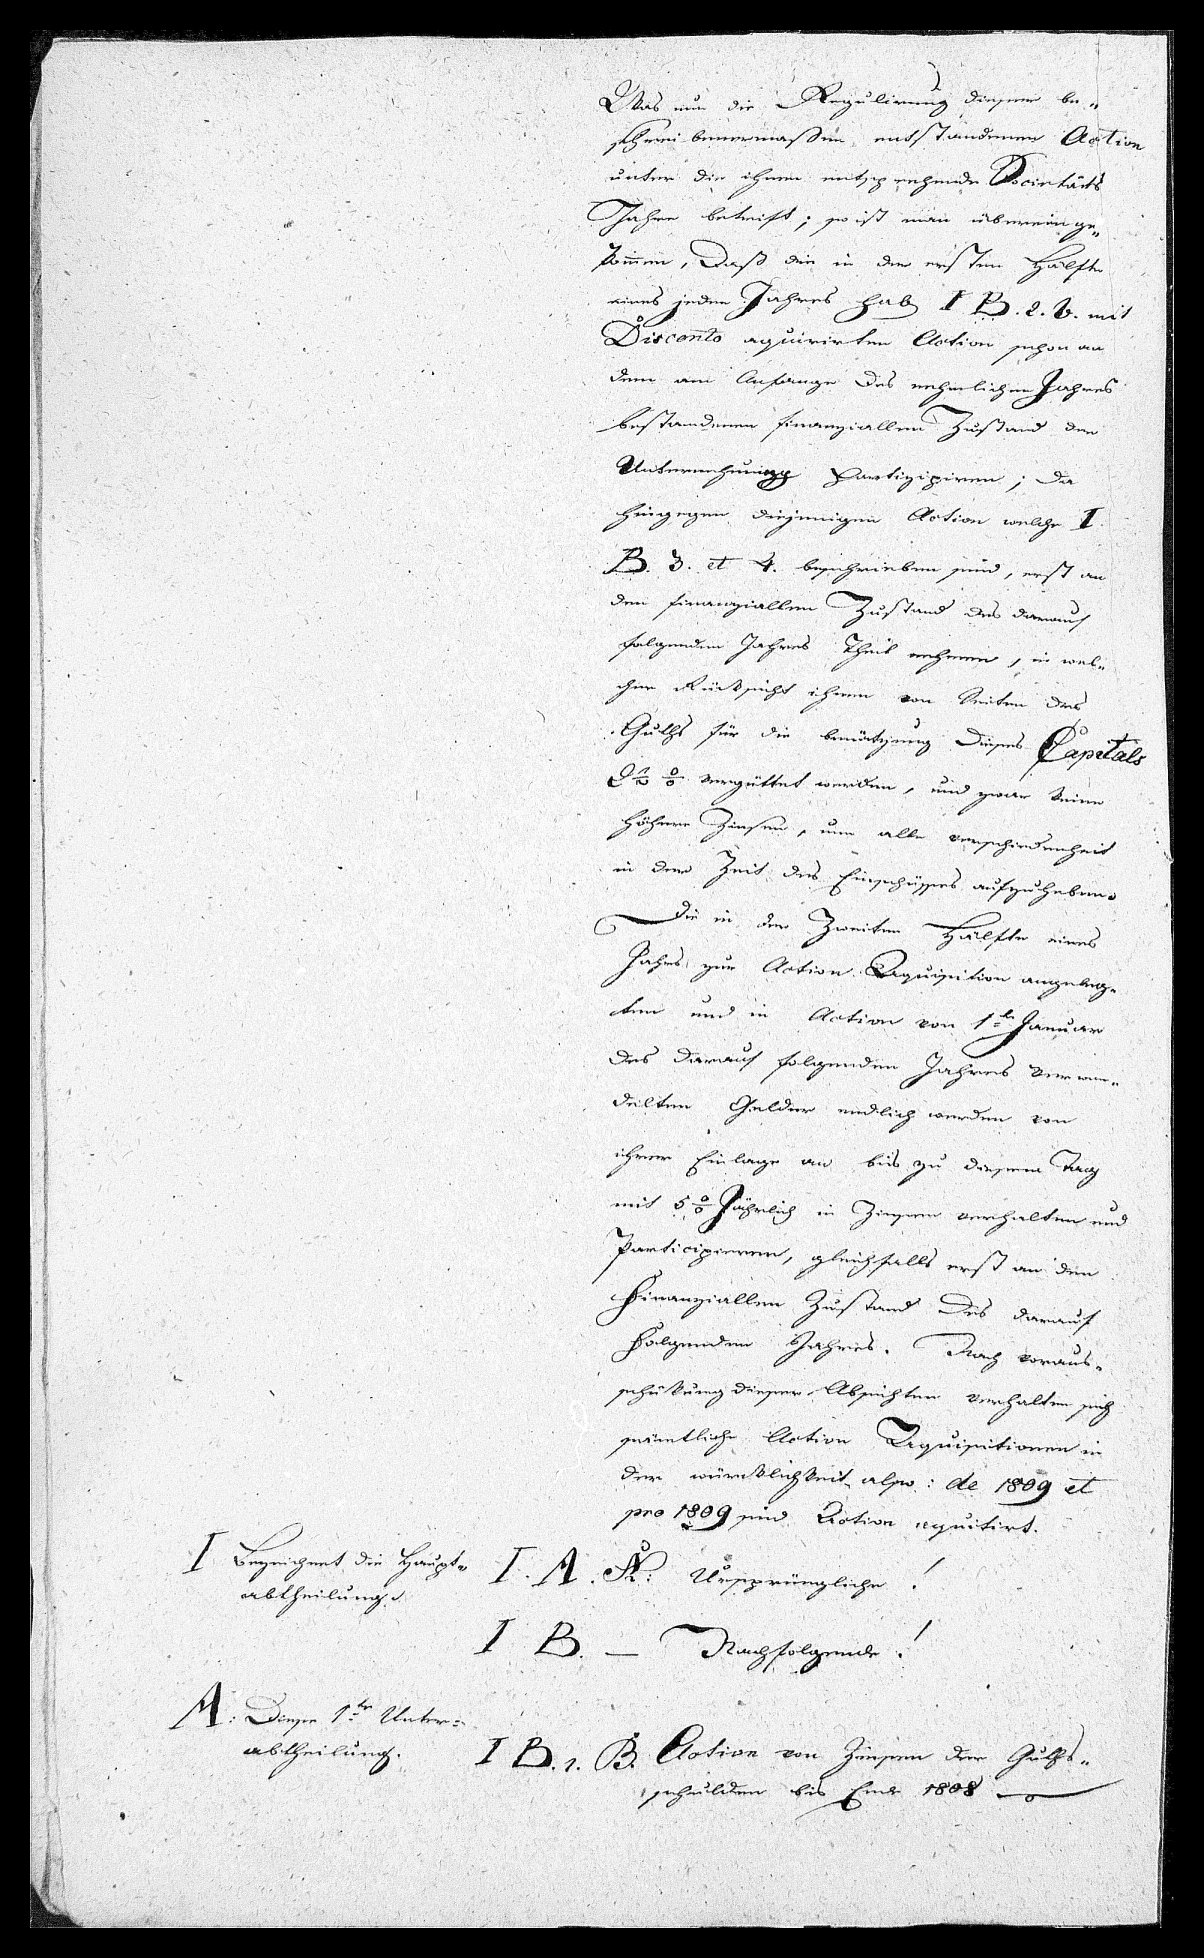 Was nun die Regulirung dieser be-
schreibenermaßen entstandenen Action
unter die ihnen entsprechende Societäts
Jahre betrift; so ist man übereinge-
kommen, daß die in der ersten Hälfte
eines jeden Jahres hab I B. 2. mit
Disconto aquirirten Action schon an
dem am Anfange des nehmlichen Jahres
bestandenen finanziallen Zustand der
Unternehmung Partizipiren; da
hingegen diejenigen Action welche I
B. 3. et 4. beschrieben sind, erst an
den finanziallen Zustand des darauf
folgenden Jahres Theil nehmen, in wel-
cher Rüksicht ihnen von Seiten des
Guths für die benützung dieses Capitals
2½ % vergüttet werden, und zwar keine
höhere Zinsen, um alle verschiedenheit
in der Zeit des Einschusses aufzuheben.
Die in der Zweiten Hälfte eines
Jahrs zur Action Aquisition angeleg-
ten und in Action von 1ten Januar
des darauf folgenden Jahres verwan-
delten Gelder endlich werden von
ihrer Einlage an bis zu diesem Tag
mit 5 % Jährlich in Zinsen verhalten und
Participieren, gleichfalls erst an den
Finanziallen Zustand des darauf
Folgenden Jahres. Nach voraus-
schikung dieser Absichten verhalten sich
sämtliche Action Aquisitionen in
der würcklichkeit also: de 1809 et
pro 1809 sind Action aquirirt.
I Bezeichnet die Haupt-
abtheilung.
I. A. Ursprüngliche!
I B. — Nachfolgende!
A: Diese 1te Unter-
abtheilung.
I B. 1. B. Action von Zinsen der Guths-
schulden bis Ende 1808